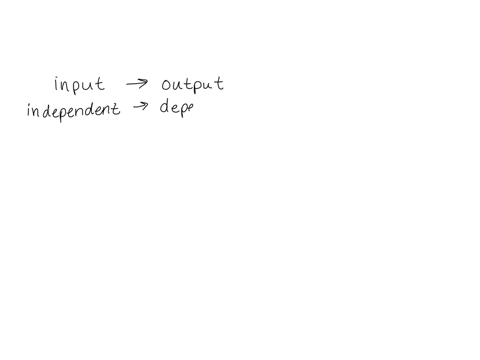 input → output
independent → depe